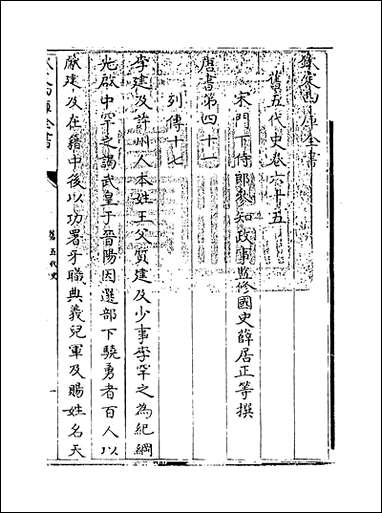 欽定四庫全書
舊五代史卷六十五
宋門下侍郎參知政事監修國史薛居正等撰
唐書第四十一
列傳十七
李建及許州人本姓王父質建及少事李罕之為紀綱
光啟中罕之謁武皇于晉陽因選部下驍勇者百人以
獻建及在籍中後以功署牙職典義兒軍及賜姓名天
欽定四庫全書
舊五代史
一